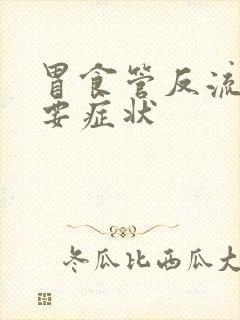 胃食管反流
要症状
冬瓜比西瓜大